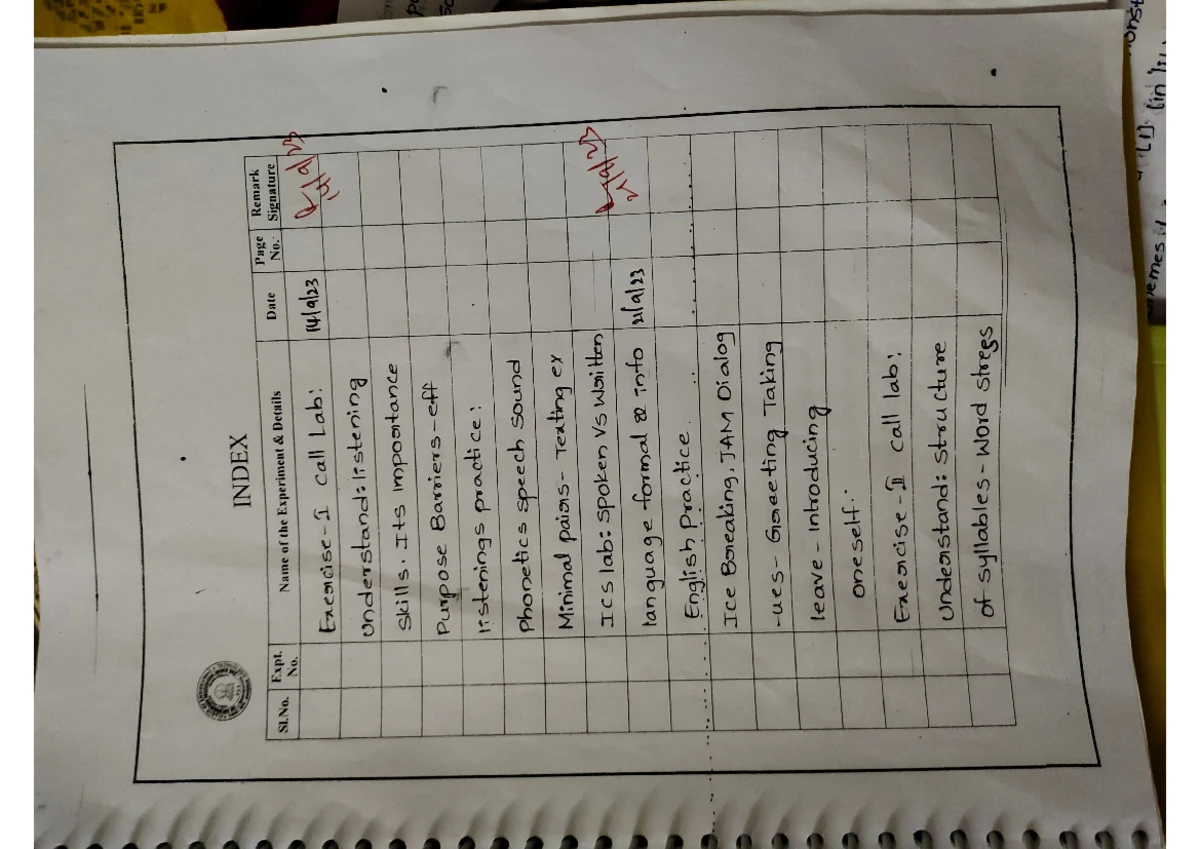 INDEX
Sl.No. Expt. No. Name of the Experiment & Details Date Page No. Remark Signature
Exercise-I call Lab: 14/9/23
Understand: listening
Skills. Its Importance
Purpose Barriers-eff
listenings practice:
Phonetics speech sound
Minimal pairs- Texting ex
Ics lab: Spoken Vs Written
language formal & info 21/9/23
English Practice
Ice Breaking, JAM Dialog
-ues- Greeting Taking
leave- Introducing
oneself.
Exercise-II call lab:
Understand: Structure
of syllables- Word stress